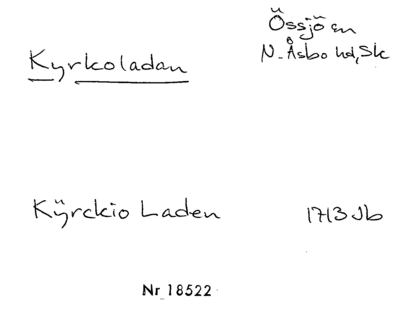 Kyrkoladan
Össjö sn
N. Åsbo hd, Sk
Kÿrckio Laden
1713 Jb
Nr 18522